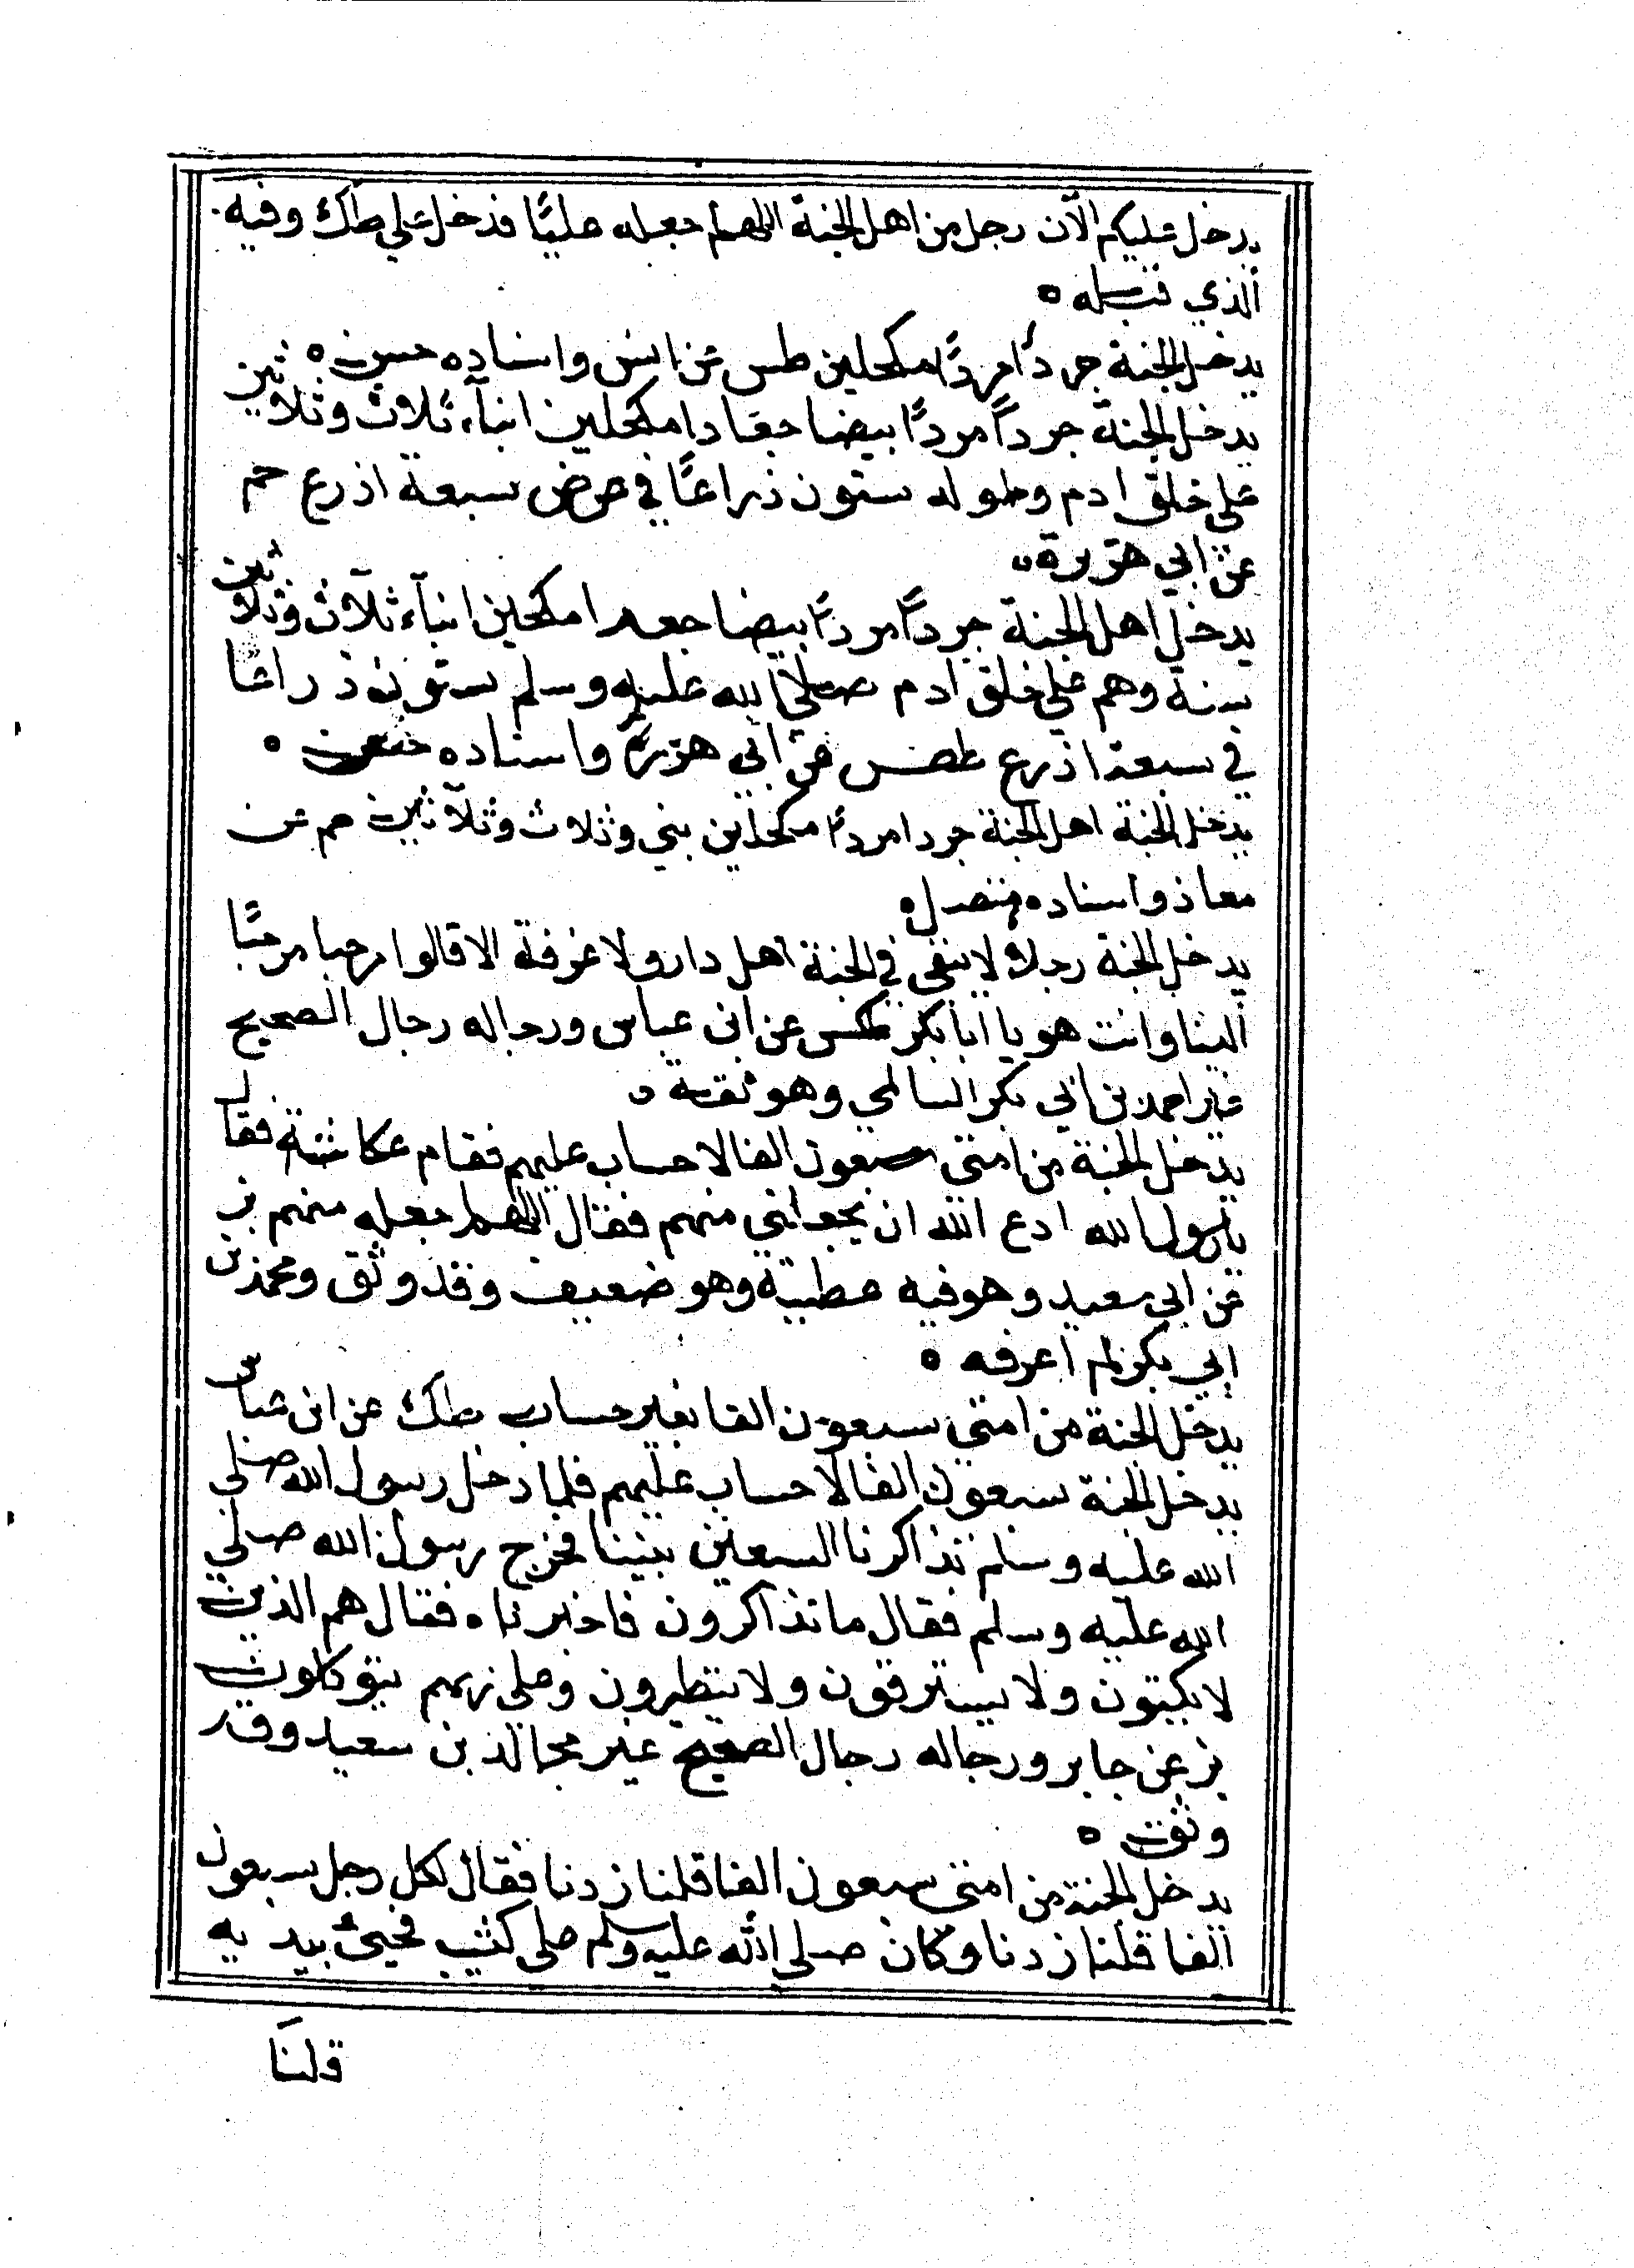 يدخل عليكم الآن رجل من اهل الجنة اللهم اجعله عليًا فدخل علي طك وفيه
الذي قبله ه
يدخل الجنة جردًا مردًا مكحلين طس عن انس واسناده حسن ه
يدخل الجنة جرداً مردًا بيضا جعادا مكحلين ابنآء ثلاث وثلاثين
على خلق ادم وطوله ستون ذراعًا في عرض سبعة اذرع حم
عن ابي هريرة
يدخل اهل الجنة جردًا مردًا بيضا جعدا مكحلين ابنآء ثلآث وثلاثين
سنة وهم علي خلق ادم صلي الله عليه وسلم ستون ذراعا
في سبعة اذرع طصس عن ابي هريرة واسناده حسن ه
يدخل الجنة اهل الجنة جردا مردًا مكحلين بني وثلاث وثلآثين حم عن
معاذ واسناده متصل ه
يدخل الجنة رجلاً لا يبقى في الجنة اهل دار ولا غرفة الا قالوا مرحبا مرحبًا
الينا وانت هو يا ابا بكر طكس عن ابن عباس ورجاله رجال الصحيح
غير احمد بن ابي بكر السالمي وهو ثقة ه
يدخل الجنة من امتي سبعون الفا لا حساب عليهم فقام عكاشة فقال
يا رسول الله ادع الله ان يجعلني منهم فقال اللهم اجعله منهم بز
عن ابي سعيد وهو فيه عطية وهو ضعيف وقد وثق ومحمد بن
ابي بكر لم اعرفه ه
يدخل الجنة من امتي سبعون الفا بغير حساب طك عن ابن عباس
يدخل الجنة سبعون الفا لا حساب عليهم فلما دخل رسول الله صلي
الله عليه وسلم تذاكرنا السبعين بيننا فخرج رسول الله صلي
الله عليه وسلم فقال ما تذاكرون فاخبرناه فقال هم الذين
لا يكتون ولا يسترقون ولا يتطيرون وعلى ربهم يتوكلون
بز عن جابر ورجاله رجال الصحيح غير مجالد بن سعيد وقد
وثق ه
يدخل الجنة من امتي سبعون الفا قلنا زدنا فقال لكل رجل سبعون
الفا قلنا زدنا وكان صلي الله عليه وسلم على كثيب فحيئ بيديه
قلنا